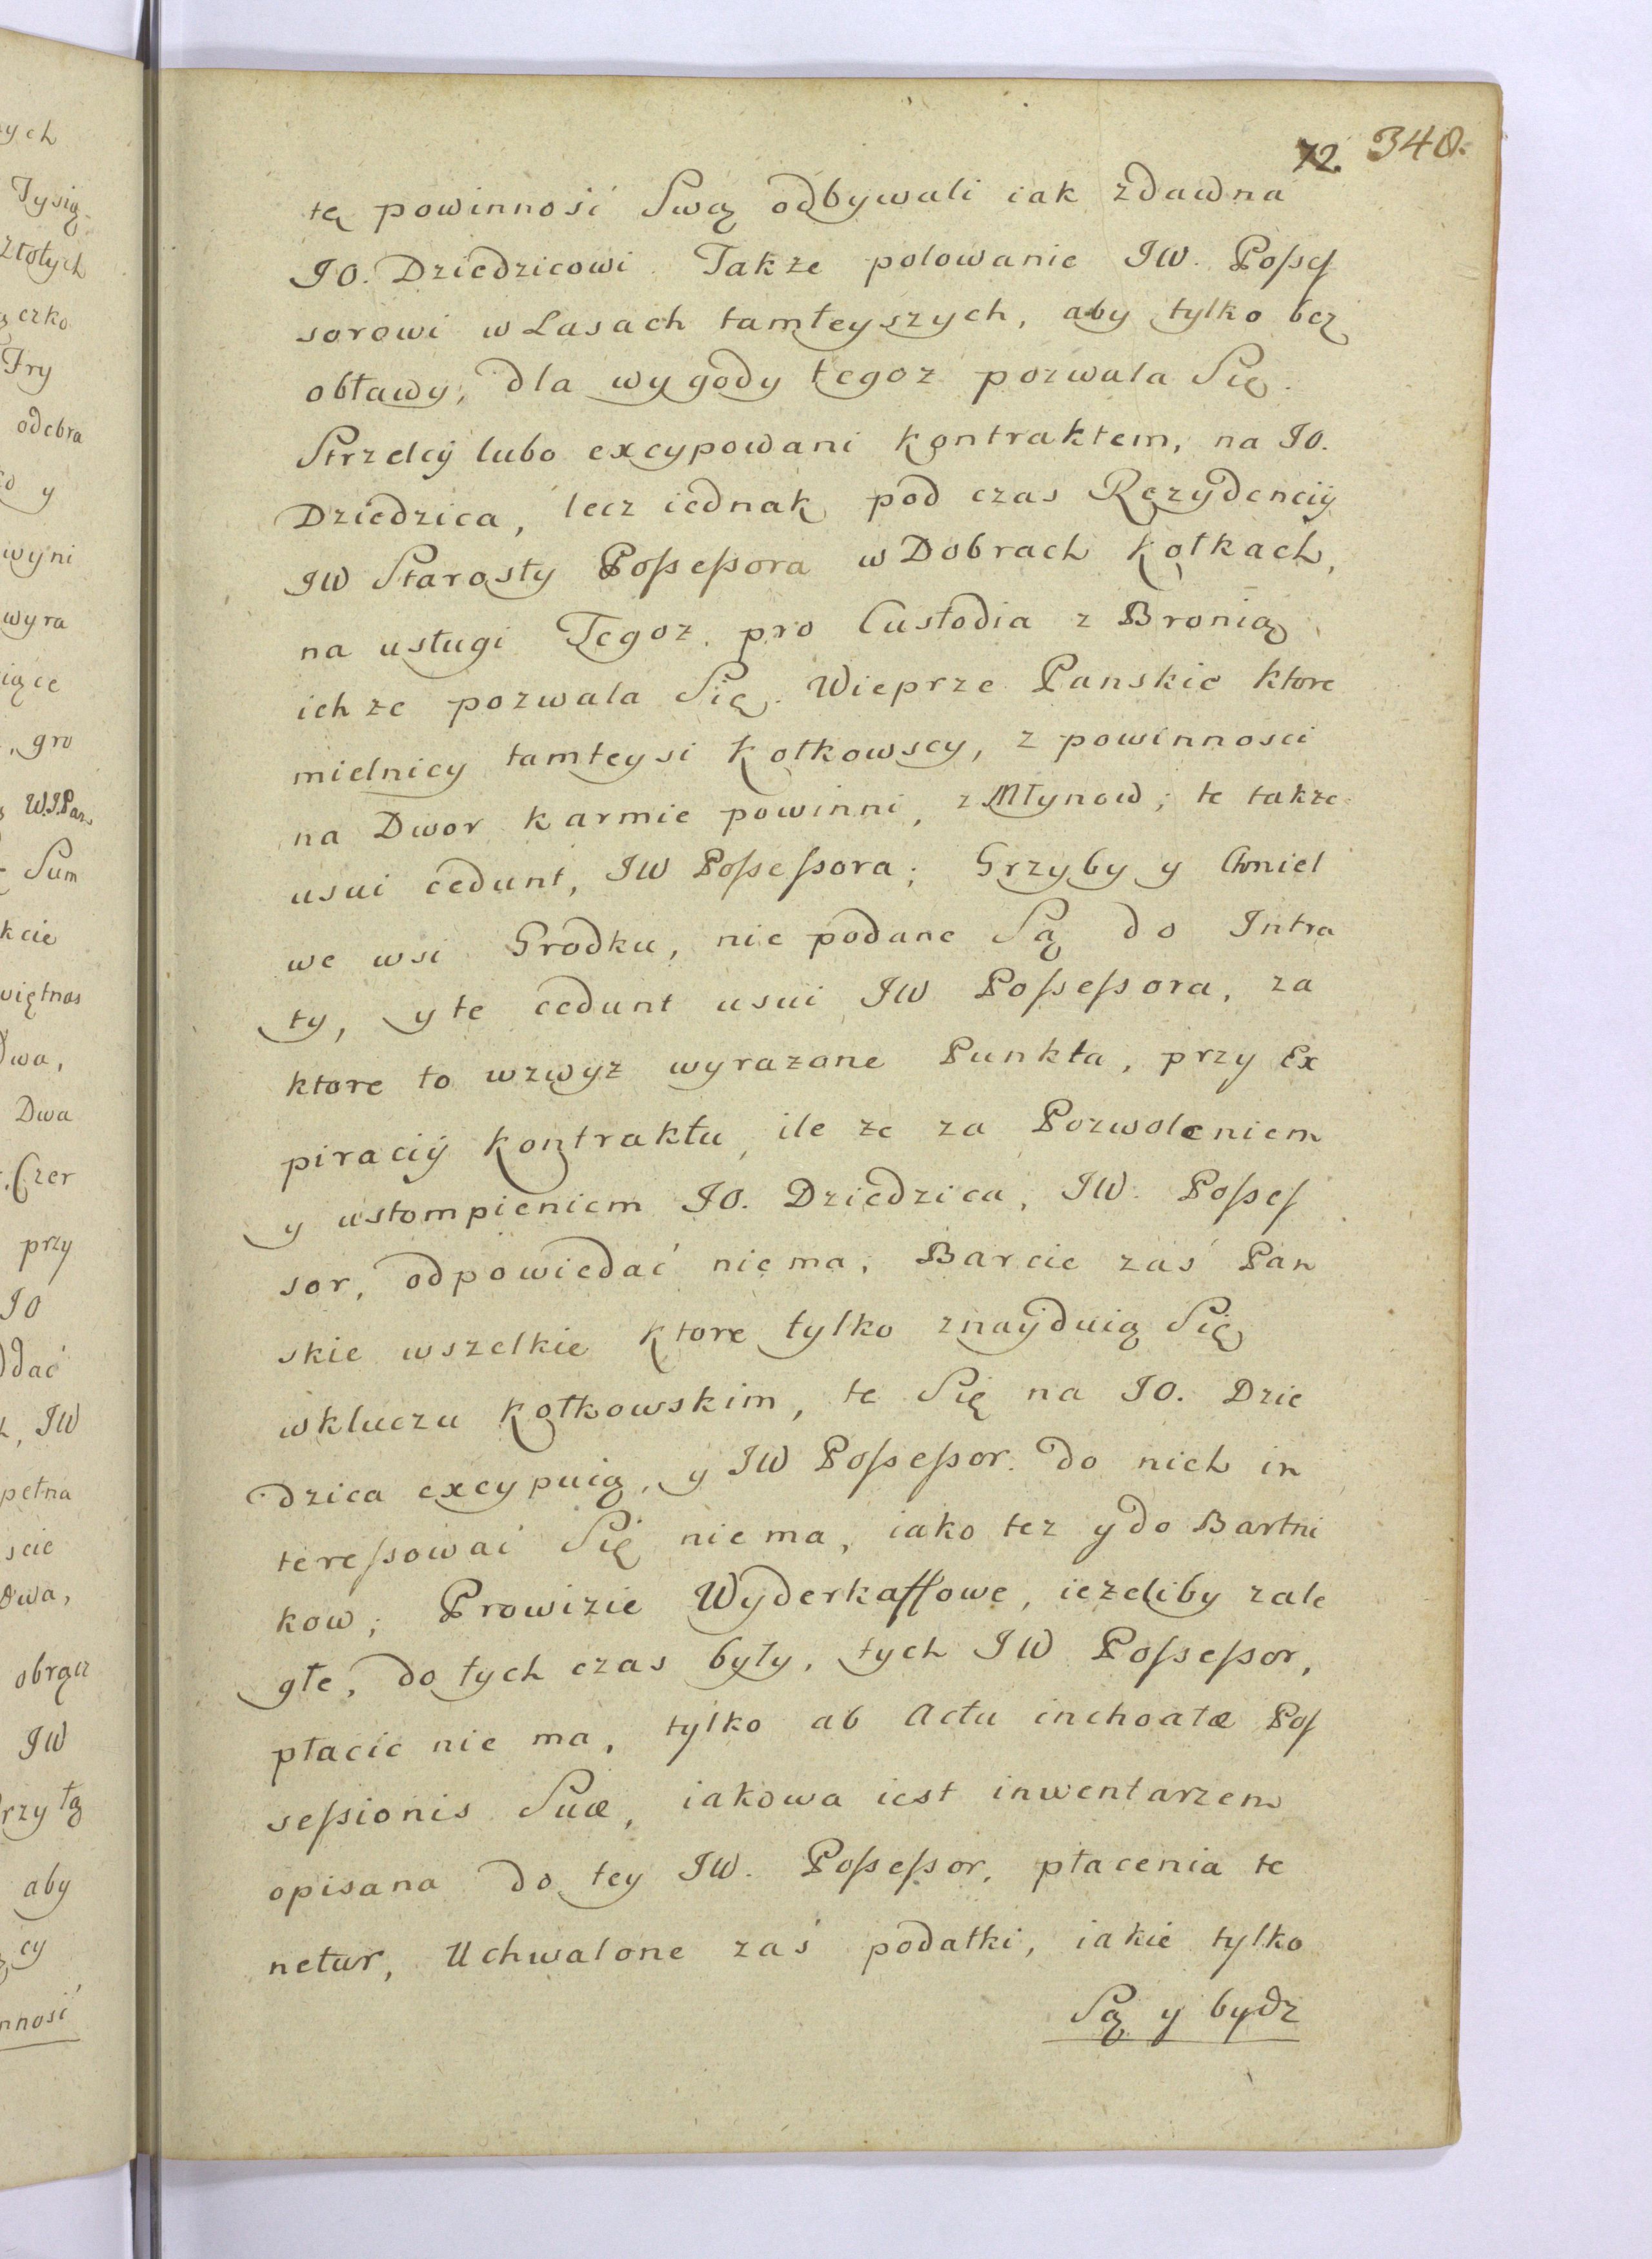 72. 340.
tę powinność Swą odbywali iak zdawna
JO. Dziedzicowi. Takze polowanie JW. Posses
sorowi w Lasach tamteyszych, aby tylko bez
obławy, dla wygody tegoz pozwala Się.
Strzelcÿ lubo excypowani kontraktem, na JO.
Dziedzica, lecz iednak pod czas Rezydencÿi
JW Starosty Possessora w Dobrach Kołkach,
na usługi Tegoz pro Custodia z Bronią
ich ze pozwala Się. Wieprze Panskie ktore
mielnicy tamteysi Kołkowscy, z powinnosci
na Dwor karmie powinni, z Młynow; te takze
usui cedunt, JW Possessora; Grzyby y Chmiel
we wsi Grodku, nie podane Są do Intra
ty, y te cedunt usui JW Possessora, za
ktore to wzwyz wyrazone Punkta, przy Ex
piracÿi kontraktu, ile ze za Pozwoleniem
y ustompieniem JO. Dziedzica, JW. Posses
sor, odpowiedać niema; Barcie zaś Pan
skie wszelkie ktore tylko znayduią Się
w kluczu Kołkowskim, te Się na JO. Dzie
dzica excypuią, y JW Possessor do nich in
teressować Się niema, iako tez y do Bartni
kow; Prowizie Wyderkaffowe, iezeliby zale
głe, do tych czas były, tych JW Possessor,
płacic nie ma, tylko ab Actu inchoatæ Pos
sessionis Suæ, iakowa iest inwentarzem
opisana do tey JW. Possessor, płacenia te
netur, Uchwalone zaś podatki, iakie tylko
Są y bydz
ych
Tysią
Złotych
czko
Try
odebra
co y
wyni
wyra
iące
, gro
W.J.Pan
Sum
kcie
więtnas
Dwa,
Dwa
Czer
przy
JO
ddać
, JW
pełna
scie
dwa,
obrącz
JW
Przy tą
aby
cy
nność